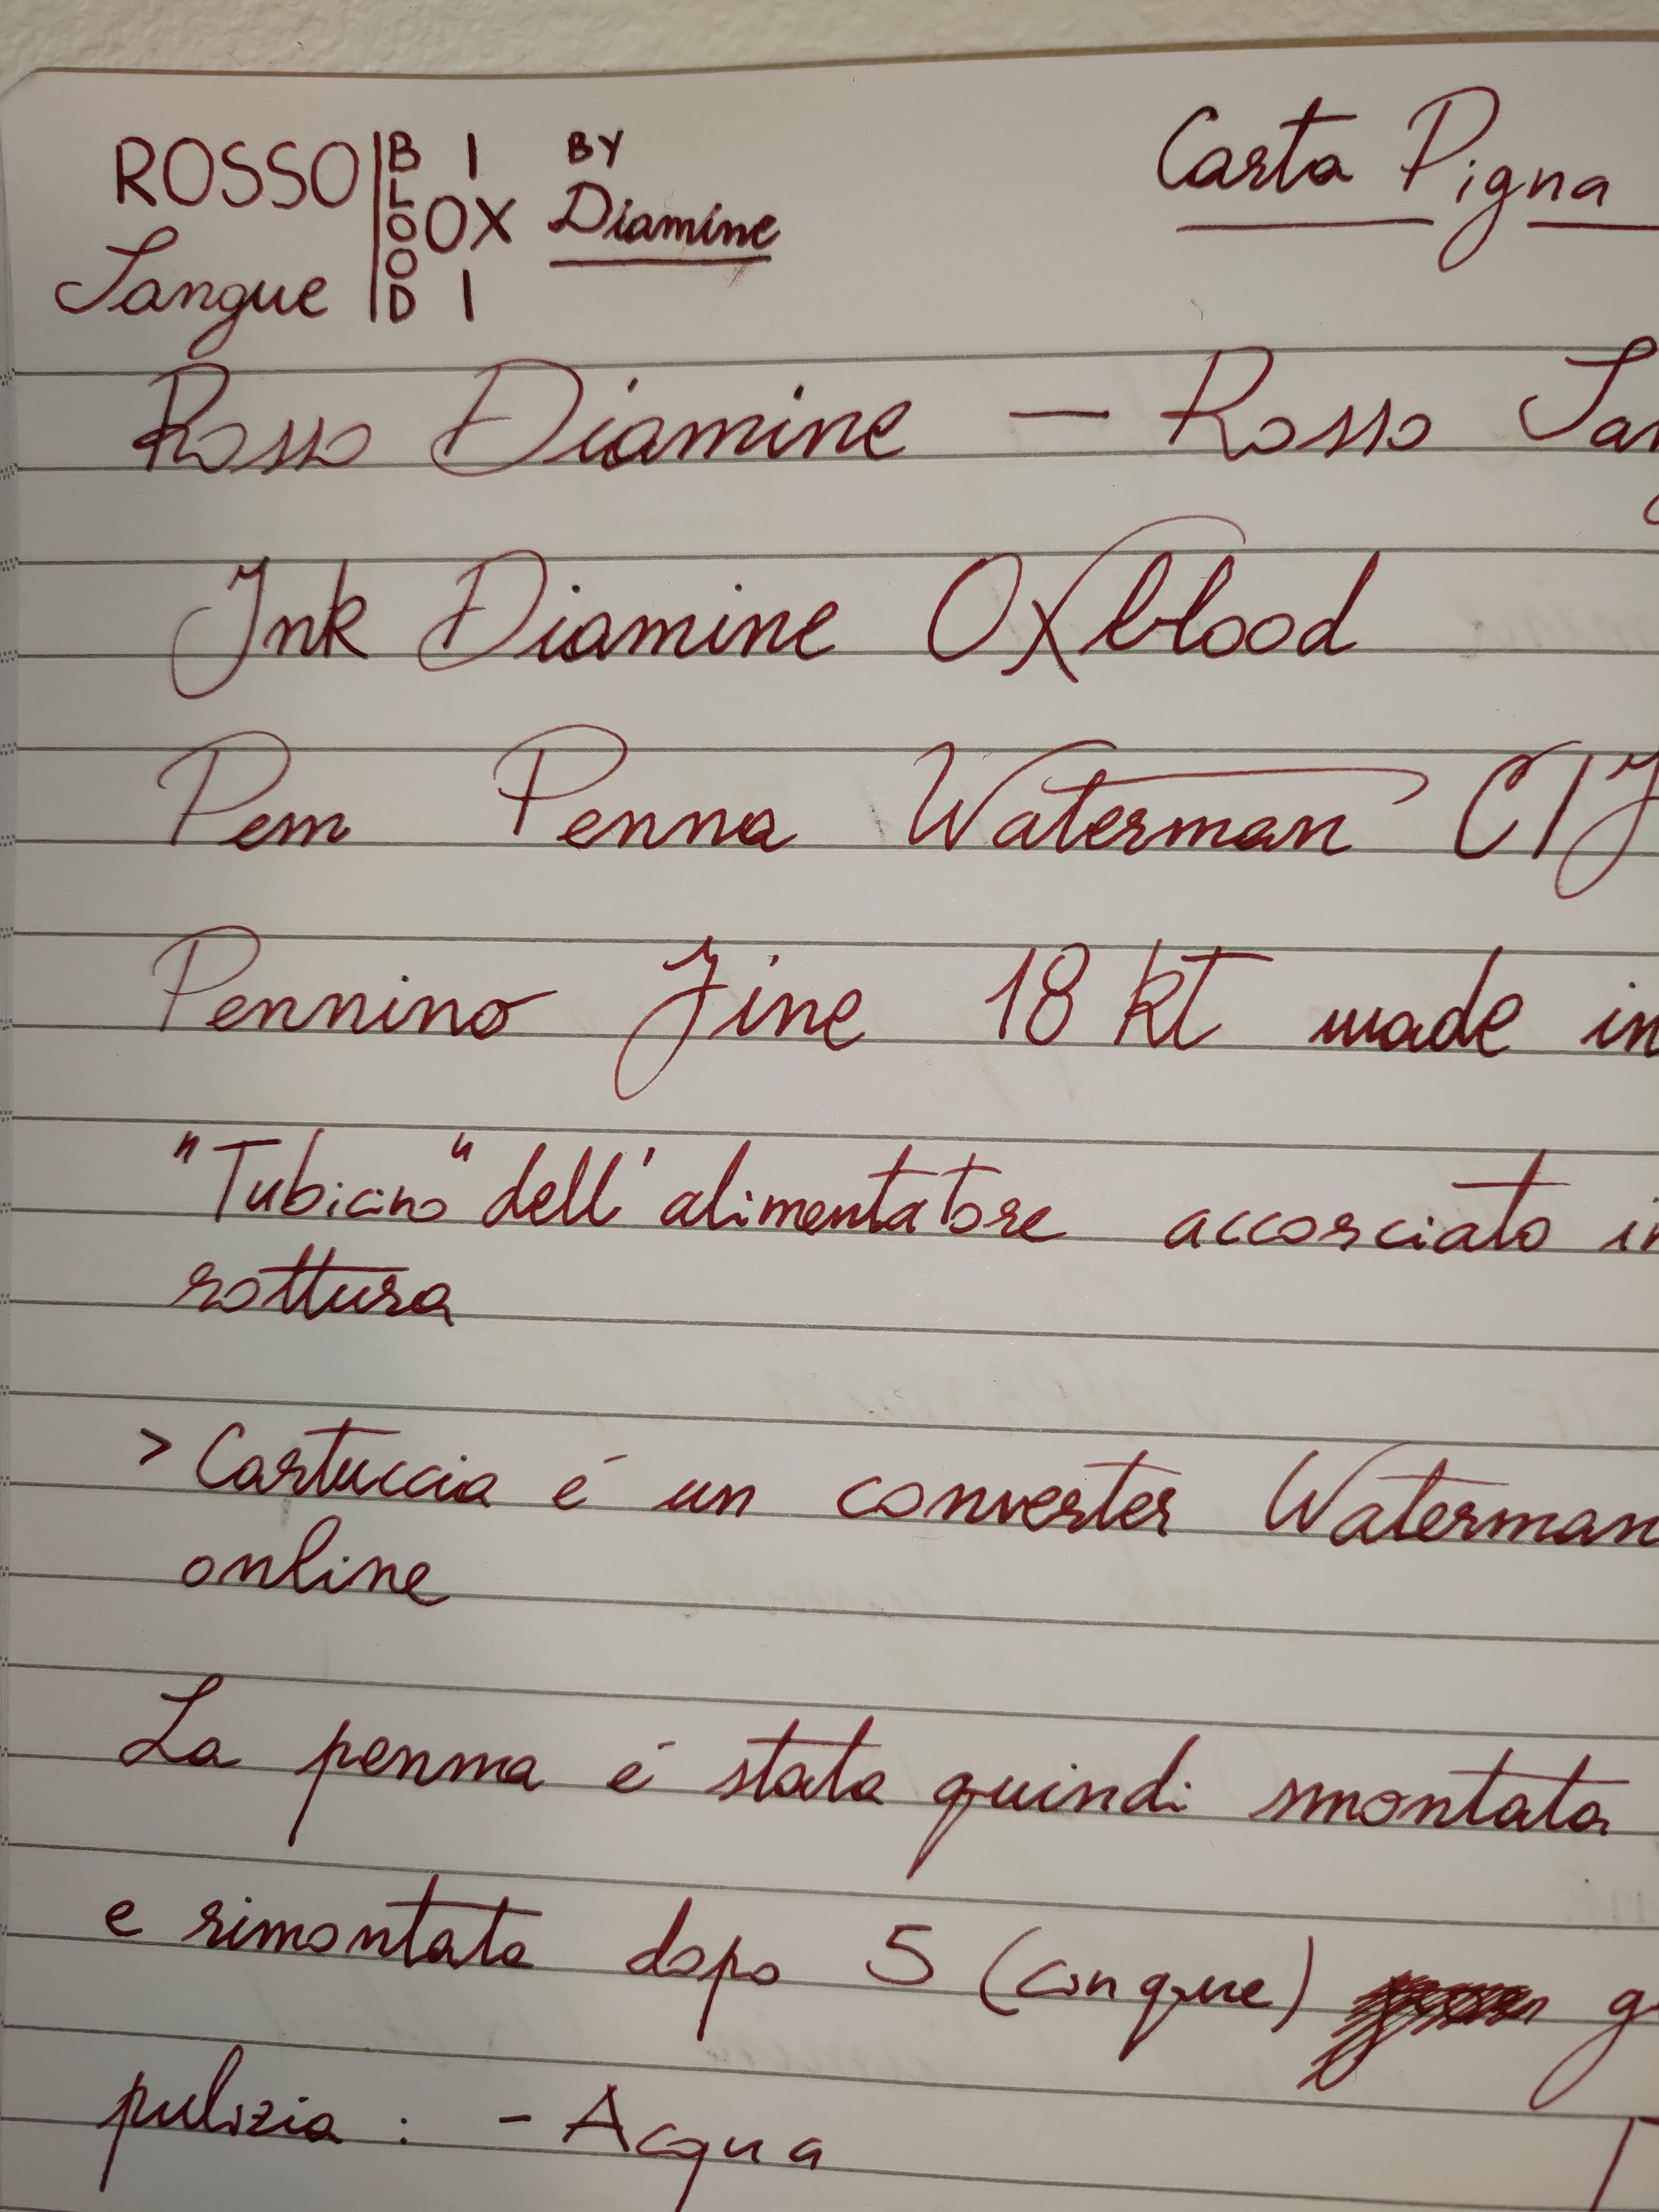 ROSSO
Sangue
BLOOD
I
OX
I
BY
Diamine
Carta Pigna
Rosso Diamine — Rosso
Ink Diamine Oxblood
Pem Penna Waterman
Pennino Fine 18 kt made in
"Tubicino" dell'alimentatore accorciato
rottura
> Cartuccia é un converter Waterman
online
La penna é stata quindi smontata
e rimontata dopo 5 (cinque)
pulizia : - Acqua